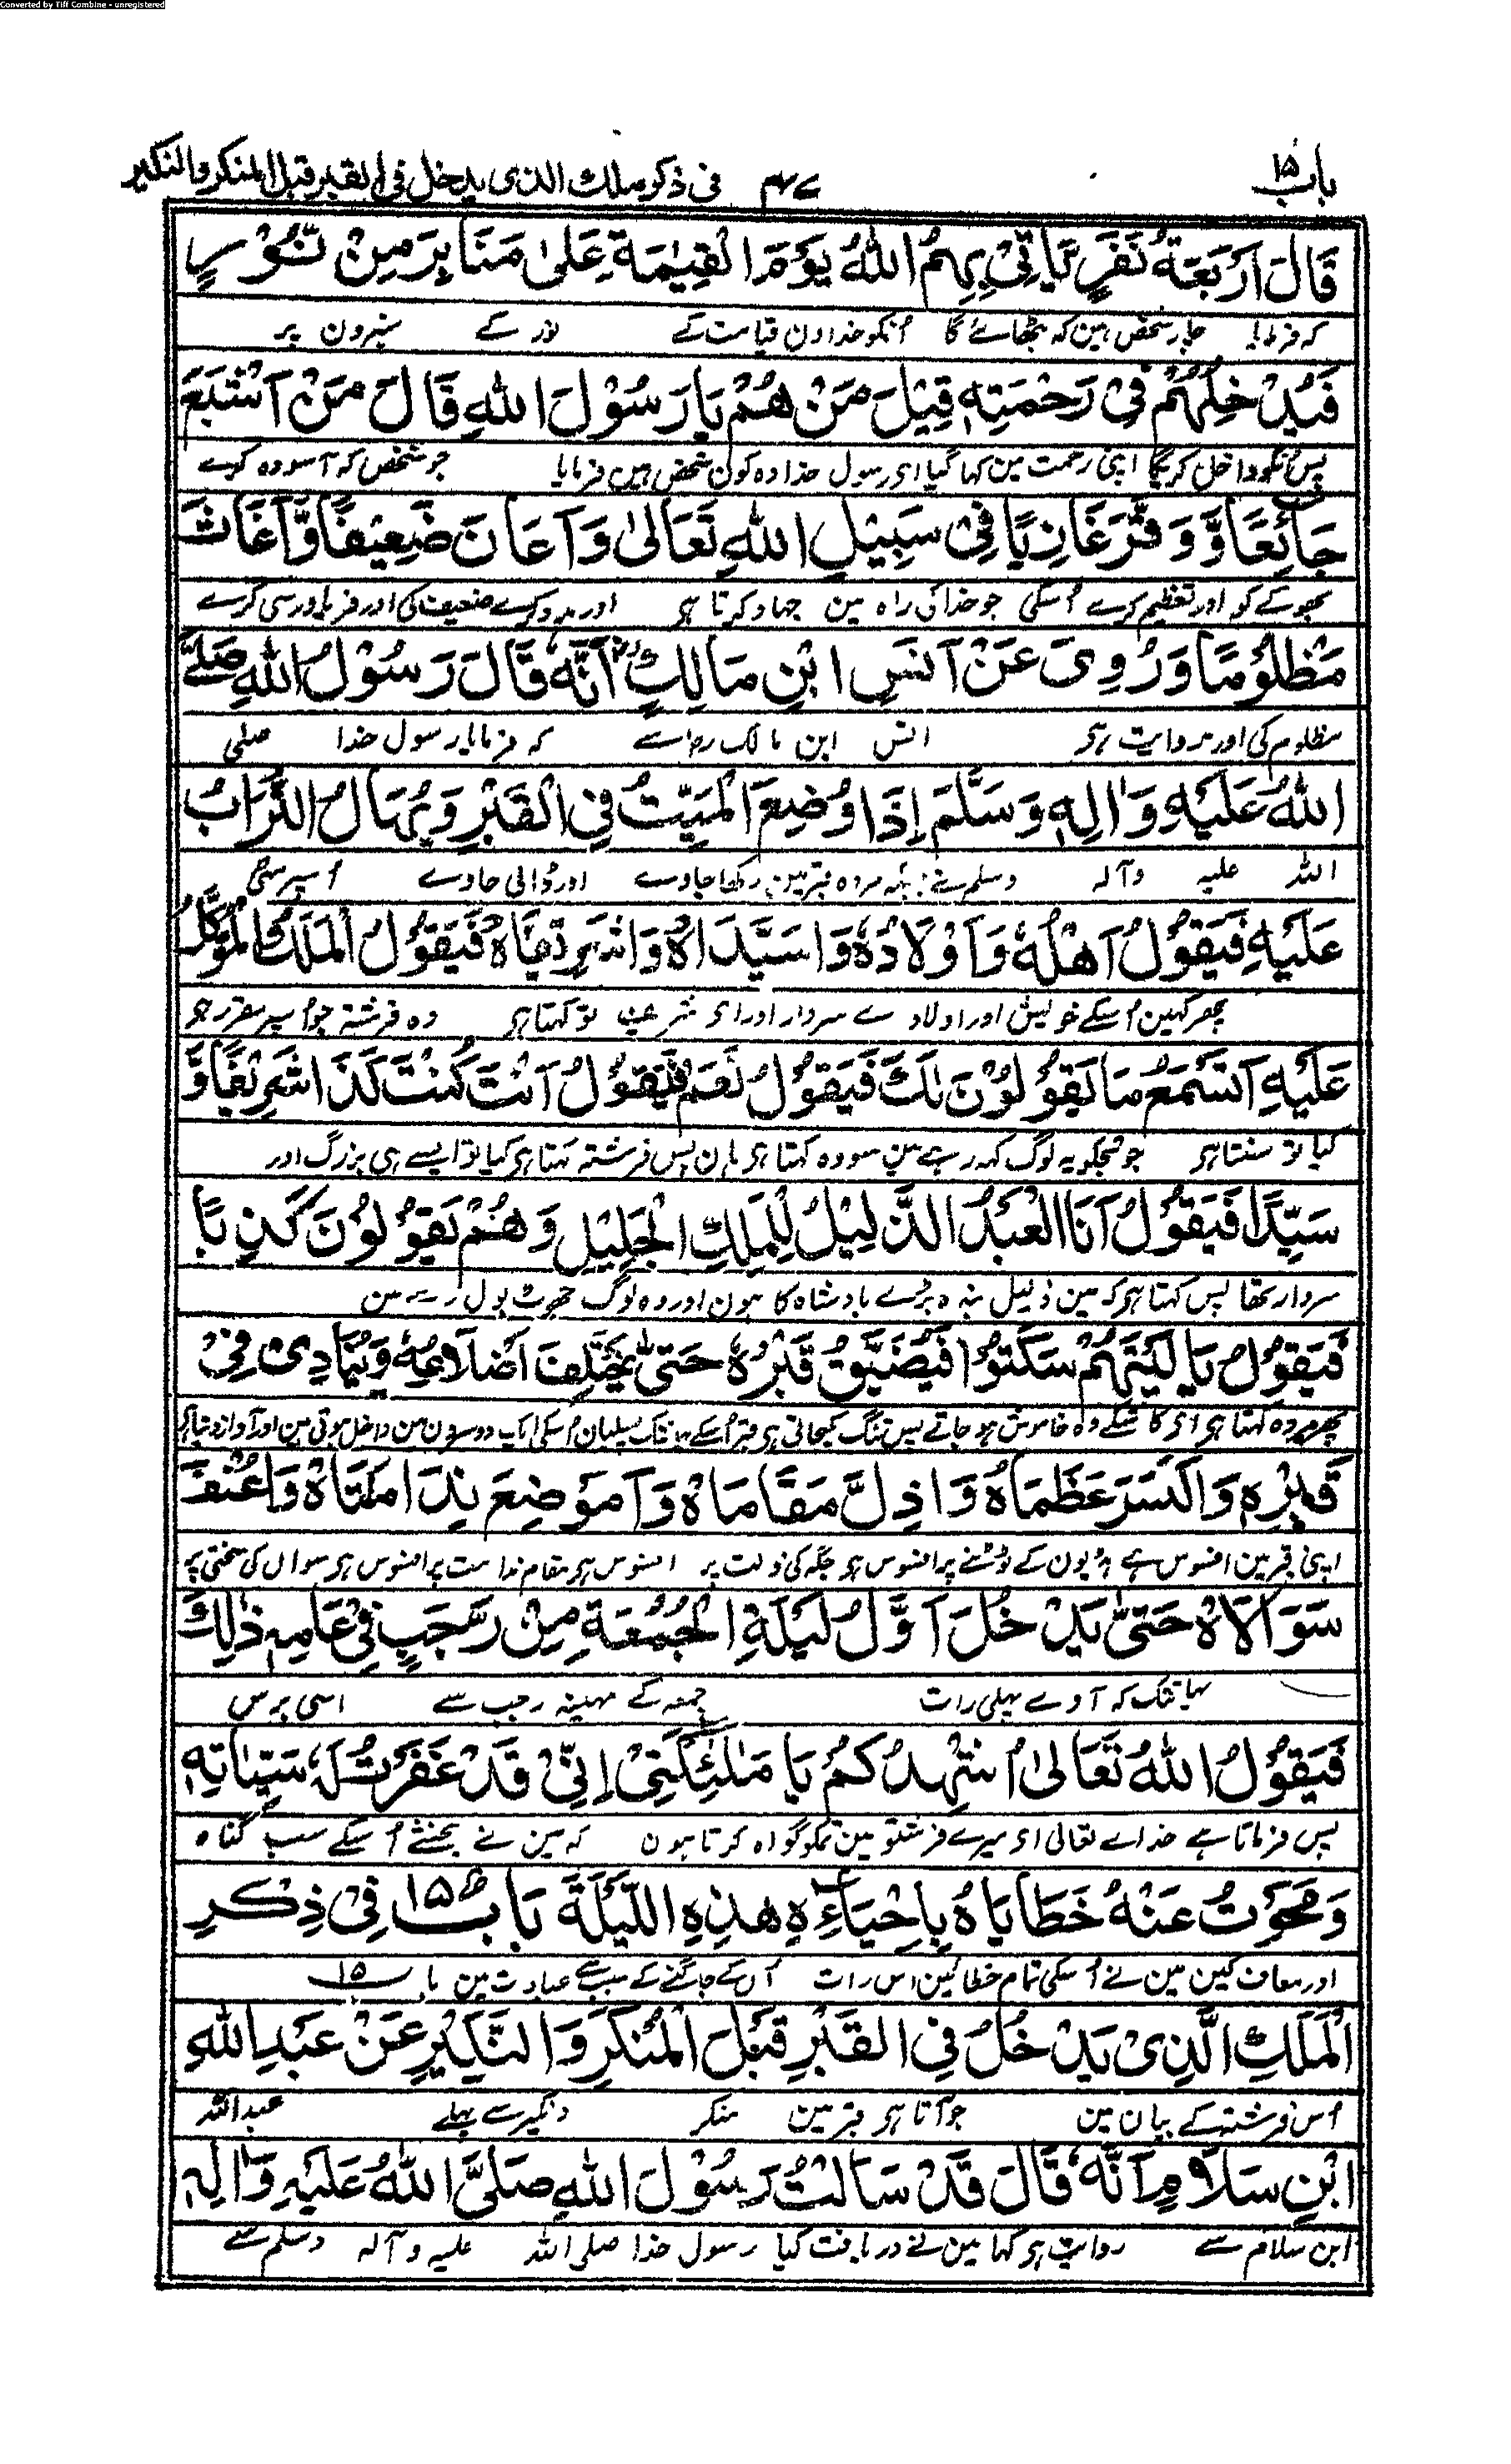 Converted by Tiff Combine - unregistered
باب ۱۵ ۴۷ فی ذکر ملك الذی یدخل فی القبر قبل المنکر والنکیر
قَالَ اَرْبَعَةُ نَفَرٍ یَّاتِیْ بِهِمُ اللهُ یَوْمَ الْقِیٰمَةِ عَلیٰ مَنَابِرَ مِنْ نُّوْرٍ
که فرمایا چار شخص ہین که بٹھائے گا اُنکو خدا دن قیامت کے نور کے منبرون پر
فَیُدْخِلُهُمْ فِیْ رَحْمَتِهٖ قِیْلَ مَنْ هُمْ یَا رَسُوْلَ اللهِ قَالَ مَنْ اَشْبَعَ
پس اُنکو داخل کریگا اپنی رحمت مین کہا گیا ای رسول خدا وہ کون شخص ہین فرمایا جو شخص که آسودہ کرے
جَائِعًا وَّ وَقَّرَ غَازِیًا فِیْ سَبِیْلِ اللهِ تَعَالیٰ وَ اَعَانَ ضَعِیْفًا وَّ اَغَاثَ
بھوکے کو اور تعظیم کرے اُسکی جو خدا کی راہ مین جہاد کرتا ہی اور مدد کرے ضعیف کی اور فریاد رسی کرے
مَظْلُوْمًا وَ رُوِیَ عَنْ اَنَسِ ابْنِ مَالِكٍ اَنَّهٗ قَالَ رَسُوْلُ اللهِ صَلَّی
مظلوم کی اور روایت ہی انس ابن مالک رض سے که فرمایا رسول خدا صلی
اللهُ عَلَیْهِ وَاٰلِهٖ وَسَلَّمَ اِذَا وُضِعَ الْمَیِّتُ فِی الْقَبْرِ وَ یُهَالُ التُّرَابُ
اللہ علیہ وآلہ وسلم نے جب مردہ قبر مین رکھا جاوے اور ڈالی جاوے اُسپر مٹی
عَلَیْهِ فَیَقُوْلُ اَهْلُهٗ وَاَوْلَادُهٗ وَاسَیِّدَاهُ وَاشَرِیْفَاهُ فَیَقُوْلُ الْمَلَكُ الْمُوَكَّلُ
پھر کہین اُسکے خویش اور اولاد اے سردار اور ای شریف تو کہتا ہی وہ فرشتہ جو اُسپر مقرر ہی
عَلَیْهِ اَتَسْمَعُ مَا یَقُوْلُوْنَ لَكَ فَیَقُوْلُ نَعَمْ فَیَقُوْلُ اَنْتَ كُنْتَ كَذَا شَرِیْفًا وَّ
کیا تو سنتا ہی جو تجکو یہ لوگ کہہ رہے ہین سو وہ کہتا ہی ہان پس فرشتہ کہتا ہی کیا تو ایسے ہی بزرگ اور
سَیِّدًا فَیَقُوْلُ اَنَا الْعَبْدُ الذَّلِیْلُ لِلْمَلِكِ الْجَلِیْلِ وَ هُمْ یَقُوْلُوْنَ كَذِبًا
سردار تھا پس کہتا ہی که مین ذلیل بندہ بڑے بادشاہ کا ہون اور وہ لوگ جھوٹ بول رہے ہین
فَیَقُوْلُ یَا لَیْتَهُمْ سَكَتُوْا فَیُضَیَّقُ قَبْرُهٗ حَتیّٰ یَخْتَلِفَ اَضْلَاعُهٗ وَ یُنَادِیْ فِیْ
پھر مردہ کہتا ہی ای کاشکے وہ خاموش ہو جاتے پس تنگ کیجاتی ہی قبر اُسکے یہانتک پسلیان اُسکی ایک دوسرون مین داخل ہوتی ہین اور آواز دیتا ہی
قَبْرِهٖ وَا كَسَرَ عَظَمَاهُ وَا ذِلَّ مَقَامَاهُ وَا مَوْضِعَ نِدَامَتَاهُ وَا عُنْفَ
اپنی قبر مین افسوس ہے ہڈیون کے ٹوٹنے پر افسوس ہی جگہ کی ذلت پر افسوس ہی مقام ندامت پر افسوس ہی سوال کی سختی پر
سَوَالَاهُ حَتیّٰ یَدْخُلَ اَوَّلُ لَیْلَةِ الْجُمُعَةِ مِنْ رَّجَبٍ فِیْ عَامِهٖ ذٰلِكَ
یہانتک که آوے پہلی رات جمعہ کے مہینہ رجب سے اسی برس
فَیَقُوْلُ اللهُ تَعَالیٰ اُشْهِدُكُمْ یَا مَلٰئِكَتِیْ اِنِّیْ قَدْ غَفَرْتُ لَهٗ سَیِّاٰتِهٖ
پس فرماتا ہے خداے تعالی ای میرے فرشتو مین تمکو گواہ کرتا ہون که مین نے بخشے اُسکے سب گناہ
وَ مَحَوْتُ عَنْهُ خَطَایَاهُ بِاِحْیَاءِهٖ هٰذِهِ اللَّیْلَةَ بَابُ ۱۵ فِیْ ذِكْرِ
اور معاف کین مین نے اُسکی تمام خطائین اس رات اُسکے جاگنے کے سبب سے عبادت مین باب ۱۵
الْمَلَكِ الَّذِیْ یَدْخُلُ فِی الْقَبْرِ قَبْلَ الْمُنْكَرِ وَ النَّكِیْرِ عَنْ عَبْدِ اللهِ
اُس فرشتہ کے بیان مین جو آتا ہی قبر مین منکر ونکیر سے پہلے عبداللہ
ابْنِ سَلَامٍ اَنَّهٗ قَالَ قَدْ سَالْتُ رَسُوْلَ اللهِ صَلَّی اللهُ عَلَیْهِ وَاٰلِهٖ
ابن سلام سے روایت ہی کہا مین نے دریافت کیا رسول خدا صلی اللہ علیہ وآلہ وسلم سے